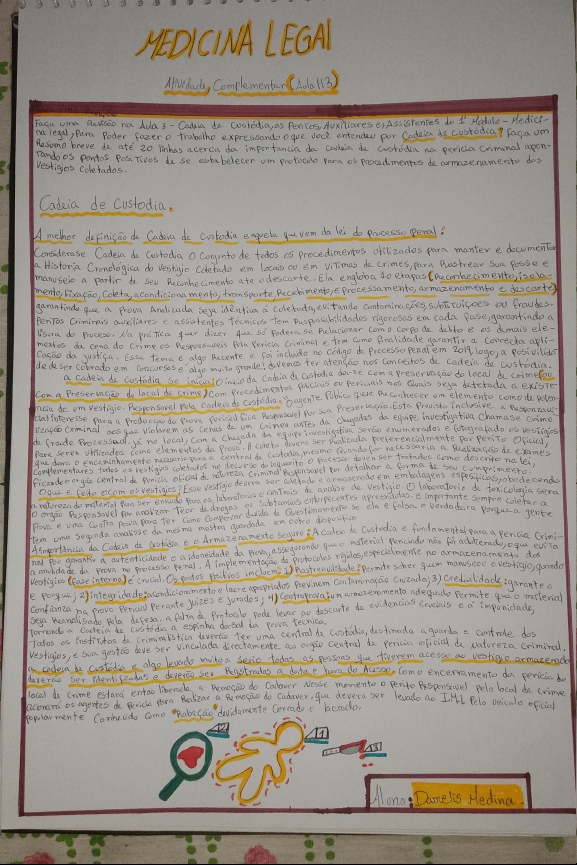 MEDICINA LEGAL
Atividade Complementar (Aula 113)
Faça uma Revisão na Aula 3 - Cadeia de Custódia, os Peritos, Auxiliares e, Assistentes do 1º Modulo - Medici-
na legal, Para Poder fazer o trabalho expressando o que você entendeu por Cadeia de custódia? faça um
Resumo breve de até 20 linhas acerca da importancia da cadeia de custódia na perícia Criminal apon-
tando os pontos Positivos de se estabelecer um protocolo para os procedimentos de armazenamento dos
Vestígios coletados.
Cadeia de Custodia.
A melhor definição de Cadeia de Custodia e aquela que vem da lei do processo penal:
Considerase Cadeia de Custodia O Conjunto de todos os Procedimentos utilizados para manter e documentar
a Historia Cronologica do Vestigio Coletado em locais ou em Vitimas de Crimes, para Rastrear sua posse e
manuseio a partir de seu Reconhecimento ate o descarte. Ela engloba 10 etapas (Reconhecimento, isola-
mento, Fixação, Coleta, acondicionamento, transporte, Recebimento, e Processamento, armazenamento e descarte)
garantindo que a Prova Analizada seja identica à Coletada, evitando Contaminações, substituições ou fraudes.
Peritos Criminais auxiliares e assistentes tecnicos Tem Responsabilidades rigorosos em cada fase, garantindo a
lisura do processo. Na prática quer dizer que só podera se Relacionar com o corpo de delito e os demais ele-
mentos da cena do Crime os Responsaveis Pela Pericia Criminal, e tem como finalidade garantir a correcta apli-
cação da justiça. Essa tema e algo Recente e foi incluido no Código de Processo penal em 2019, logo, a possibilidade
de ser Cobrado em Concursos e algo muito grande, devemos ter atenção nos Conceitos de Cadeia de custodia.
a Cadeia de Custodia se inicia: O inicio da Cadeia de Custodia da-se com a preservação do local de crime (ou
Com a Preservação do local de Crime) Com Procedimentos policiais ou Periciais nos Quais seja detetada a existe-
ncia de um Vestigio. Responsavel Pela Cadeia de Custodia: O agente Público que Reconhecer um elemento como de poten-
cial Interesse Para a Produção da Prova pericial fica Responsavel Por sua Preservação. Esta Previsto inclusive a Responzavi-
lização Criminal aos que Violarem as Cenas de um Crimen antes da Chegadas da equipe Investigativa Chamase Crime
de fraude Processual. já no local, com a Chegada da equipe investigativa serão enumerados e fotografado os vestigios
Para serem utilizados como elementos da Prova. A coleta devera ser Realizada preferencialmente por Perito Oficial,
que dara o encaminhamento necessario para a Central de Custodia, mesmo Quando for necessaria a Realização de exames
complementares todos os vestigios coletados no decurso do inquerito o Processo devem ser tratados como descrito na lei,
ficando o orgão central de pericia oficial de natureza criminal Responsavel por detalhar a forma de seu cumprimento.
O que e feito com os vestigios: Esse Vestigio devera ser coletado e armazenado em embalagens especificas, obedecendo
a natureza do material Para ser enviado para os laboratorios e centrais de analise de vestigio O laboratorio de toxicologia seria
o orgão Responsavel por analizar Teor de drogas ou substancias entorpecentes apreendidas. e importante sempre coletar a
Prova e uma Contra prova para Ter como Comprovar duvida ou Questionamento se ela e falsa o verdadera porque a gente
Tem uma segunda analisse da mesma mostra guardada em outro dispositivo
A importância da Cadeia de Custodia e o Armazenamento Seguro: A Cadeia de Custodia e fundamental para a pericia Crimi-
nal Por garantir a autenticidade e a idoneidade da Prova, assegurando que o material Periciado não foi adulterado, o que evita
a anulidade da prova no processo penal. A implementação de Protocolos rigidos, especialmente no armazenamento dos
Vestigios (fase interna) é crucial. Os pontos Positivos incluem: 1) Rastreabilidade: Permite saber quem manuseou o vestigio, quando
e porque, 2) integridade: acondicionamento e lacre apropriados Previnem Contaminação Cruzada; 3) Credibilidade: garante a
Confiança na Prova Pericial Perante Juizes e jurados; 4) Contraprova: um armazenamento adequado Permite que o material
seja Reanalisado Pela defesa. a falta de Protocolo pode levar ao descarte de evidencias cruciais e a impunidade,
tornando a Cadeia de Custodia a espinha dorsal da prova tecnica.
Todos os Institutos de Criminalística deverão Ter uma central de Custodia, destinada a guarda e controle dos
Vestigios, e sua gestão deve ser Vinculada directamente ao orgão Central de pericia oficial de natureza Criminal.
a cadeia de Custodia e algo levado muito a serio todas as pessoas que tiverem acesso ao vestigio armazenado
deverão ser identificadas e deverão ser Registradas a data e hora do Acesso. Como encerramento da pericia do
local do Crime estará então liberada a Remoção do Cadaver Nesse momento o Perito Responsavel pelo local de crime
acionará os agentes de Pericia Para Realizar a Remoção do Cadaver, que devera ser levado ao IML Pelo veiculo oficial
popularmente Conhecido como "Rabecão" devidamente Cerrado e lacrado.
Aluna: Damelis Medina.